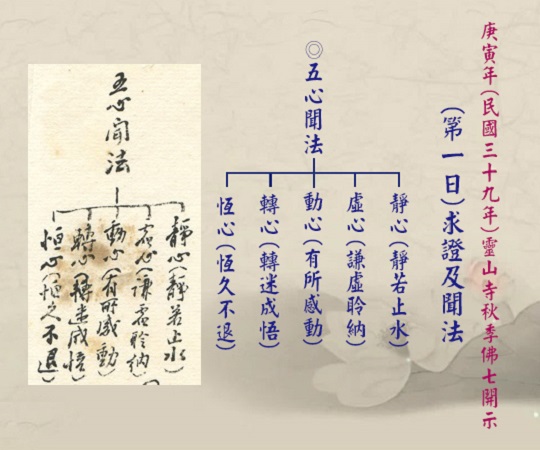 庚寅年(民國三十九年)靈山寺秋季佛七開示
(第一日)求證及聞法
◎五心聞法
靜心(靜若止水)
虛心(謙虛聆納)
動心(有所感動)
轉心(轉迷成悟)
恆心(恆久不退)
五心聞法
靜心(靜若止水)
虛心(谦虛聆納)
動心(有所感動)
轉心(轉迷成悟)
恒心(恒久不退)